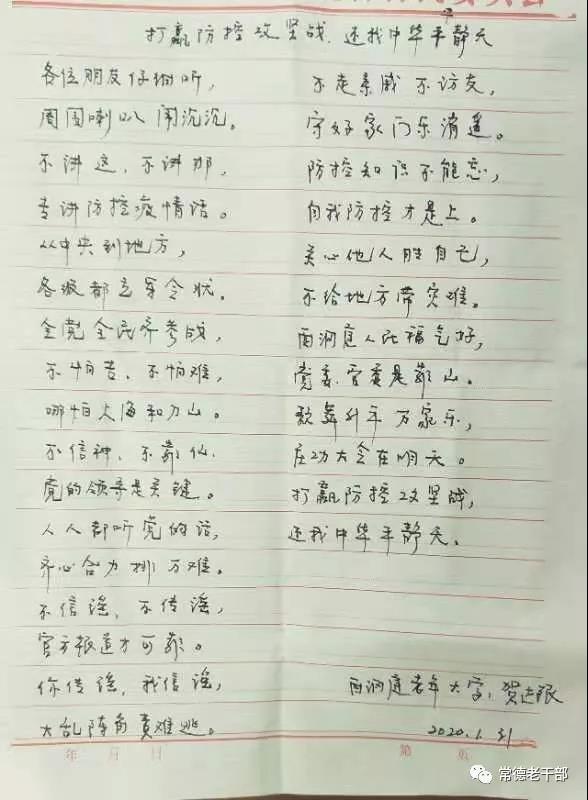 打赢防控攻坚战，还我中华平静天
各位朋友仔细听，
周围喇叭闹沉沉。
不讲这、不讲那，
专讲防控疫情话。
从中央到地方，
各级都立军令状。
全党全民齐参战，
不怕苦、不怕难，
哪怕火海和刀山。
不信神、不靠仙，
党的领导是关键。
人人都听党的话，
齐心合力排万难。
不信谣、不传谣，
官方报道才可靠。
你传谣，我信谣，
大乱阵角责难逃。
不走亲戚不访友，
守好家门乐逍遥。
防控知识不能忘，
自我防控才是上。
关心他人胜自己，
不给地方带灾难。
西洞庭人民福气好，
党委、管委是靠山。
歌舞升平万家乐，
庄功大会在明天。
打赢防控攻坚战，
还我中华平静天。
西洞庭老年大学：贺
2020.1.31
年 月 日
第 页
常德老干部